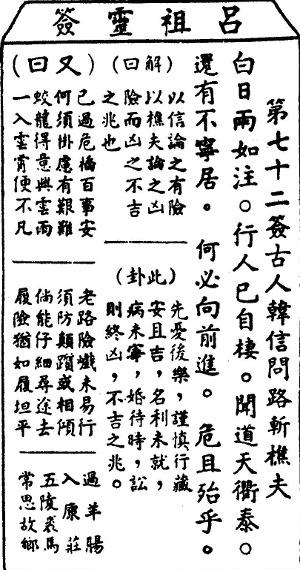 呂祖靈簽
第七十二簽古人韓信問路斬樵夫
白日雨如注。行人已自棲。聞道天衢泰。
還有不寧居。何必向前進。危且殆乎。
(解曰)
以信論之有險
以樵夫論之凶
險而凶之不吉
之兆也
(此卦)
先憂後樂，謹慎行藏
安且吉，名利未就，
病未寧，婚待時，訟
則終凶，不吉之兆。
(又曰)
已過危橋百事安
何須掛慮有艱難
蛟龍得意興雲雨
一入雲霄便不凡
老路險巇未易行
須防顛躓或相傾
倘能仔細尋途去
履險猶如履坦平
過羊腸
入康莊
五陵裘馬
常思故鄉